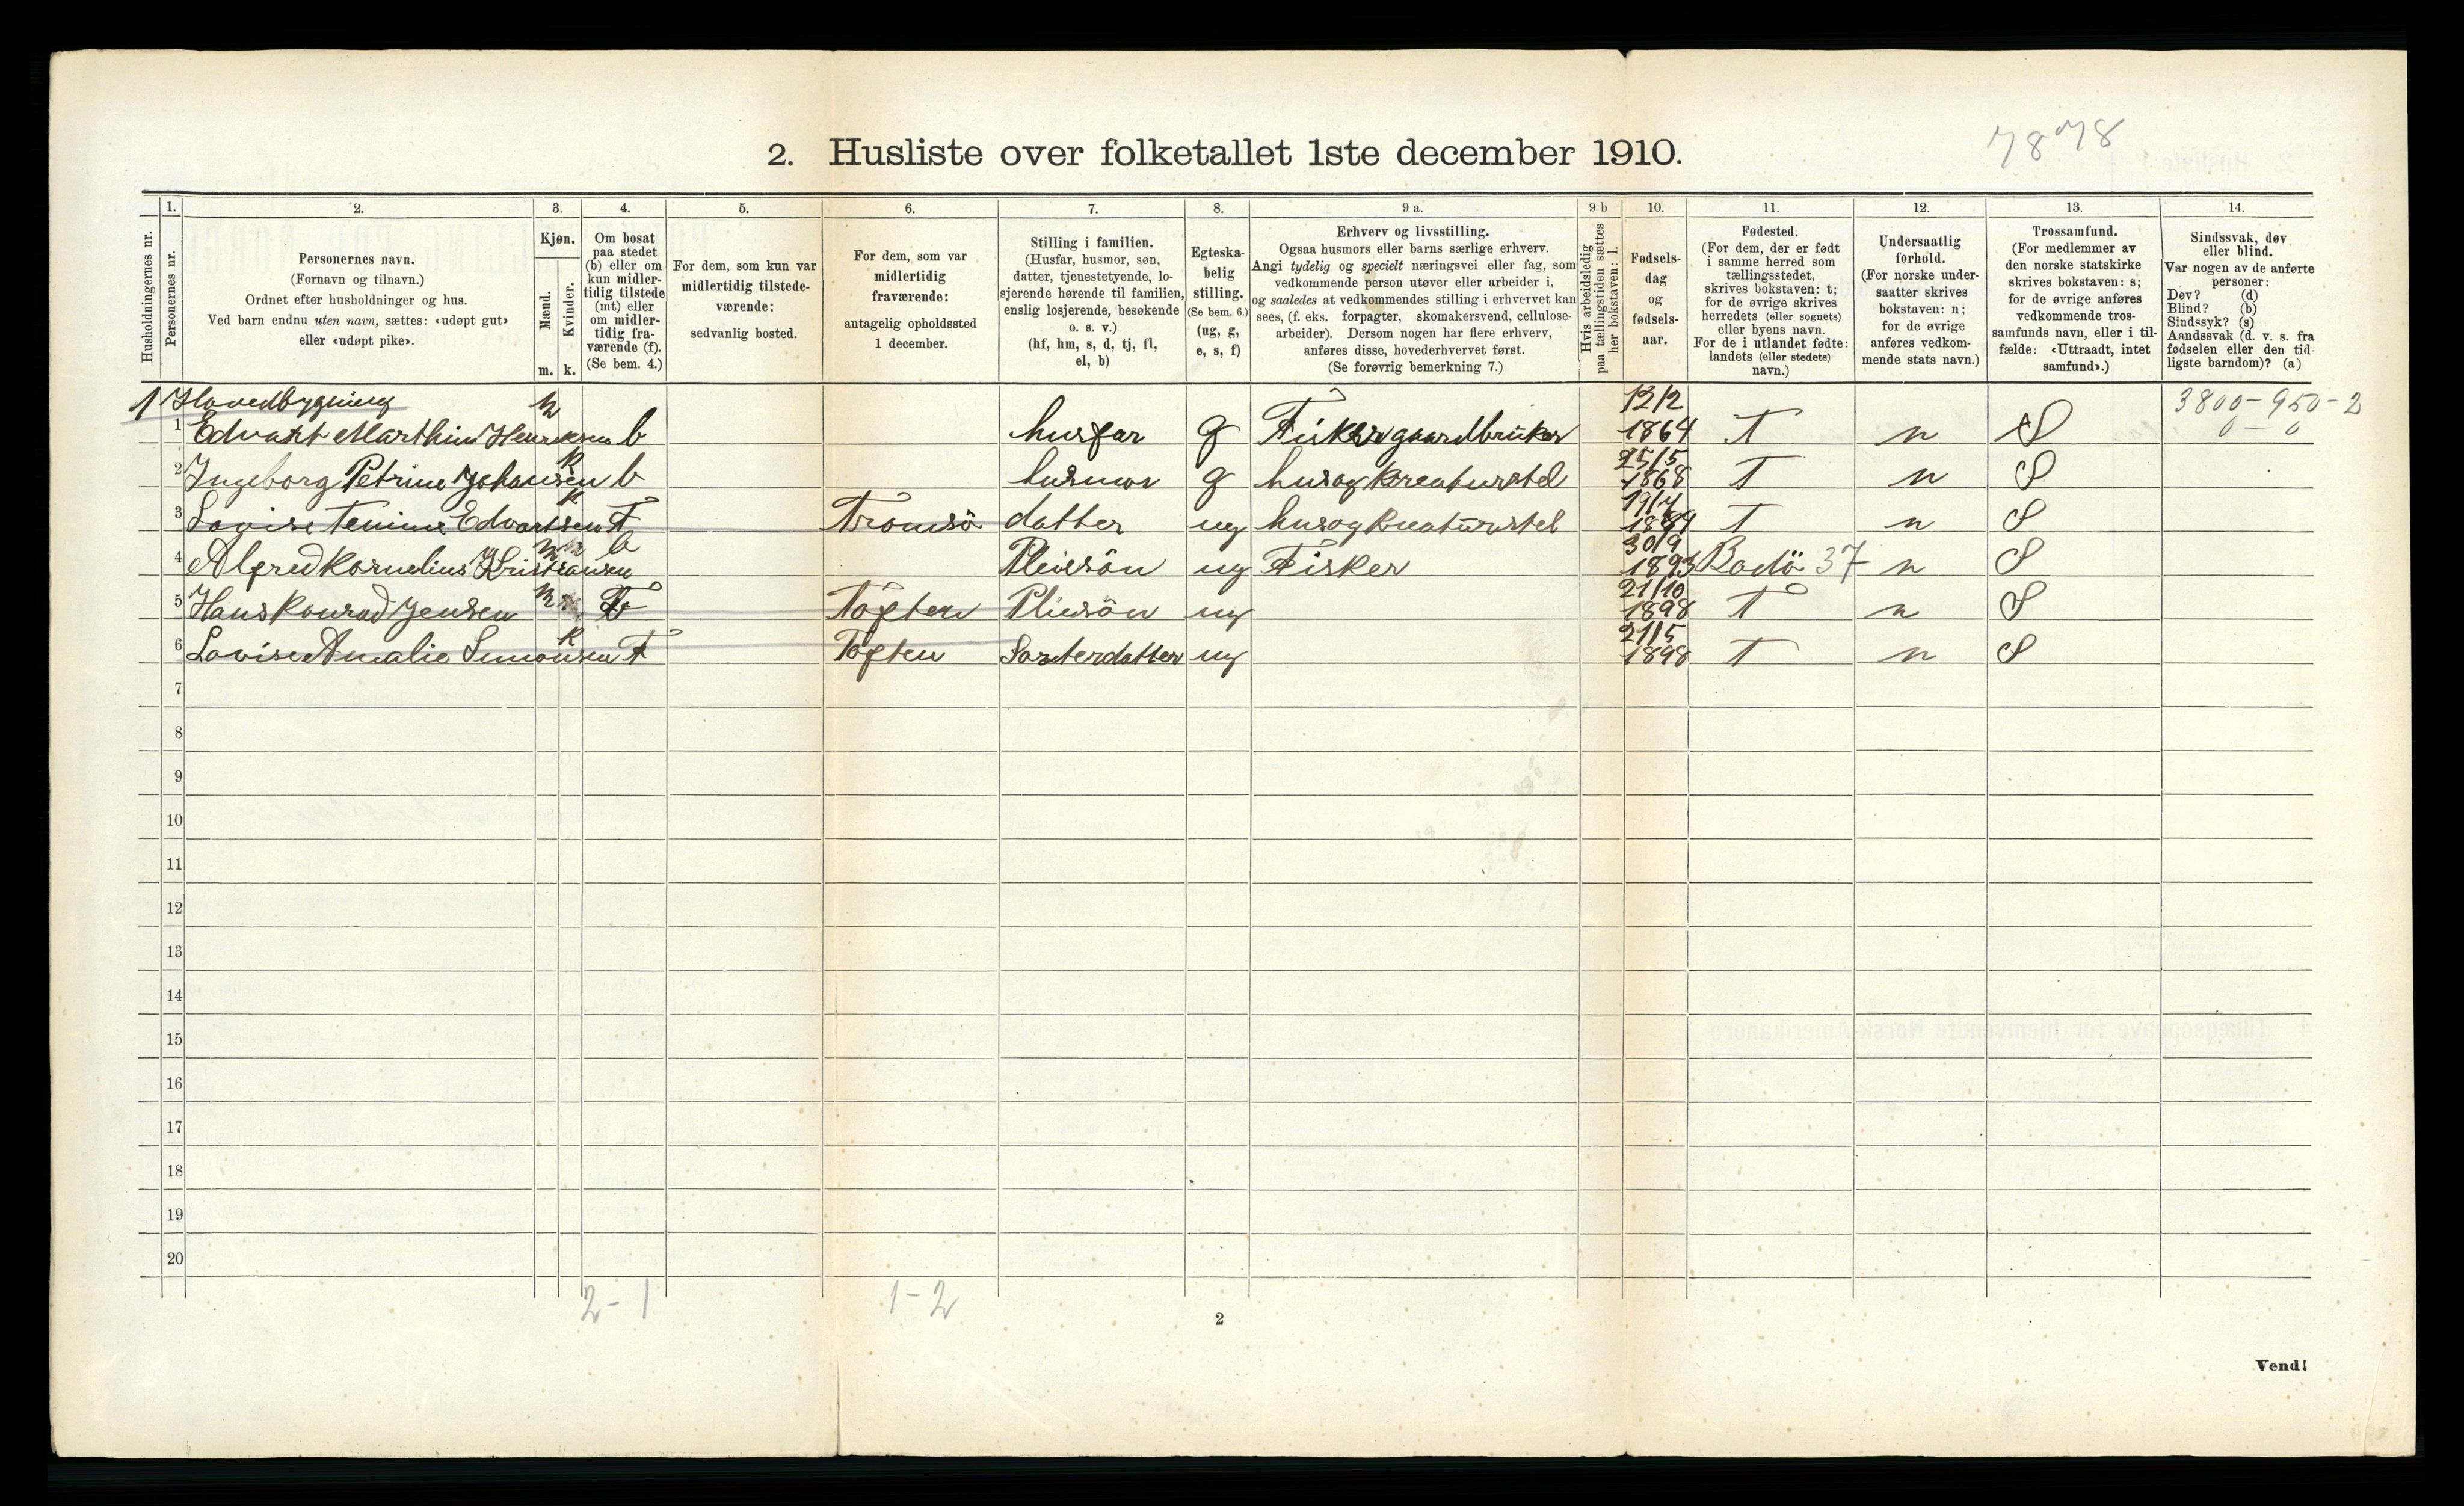 2. Husliste over folketallet 1ste december 1910.
7878
Husholdningernes nr.
1.
Personernes nr.
2.
Personernes navn.
(Fornavn og tilnavn.)
Ordnet efter husholdninger og hus.
Ved barn endnu uten navn, sættes: «udøpt gut»
eller «udøpt pike».
3.
Kjøn.
Mænd.
Kvinder.
m. k.
4.
Om bosat
paa stedet
(b) eller om
kun midler-
tidig tilstede
(mt) eller
om midler-
tidig fra-
værende (f).
(Se bem. 4.)
5.
For dem, som kun var
midlertidig tilstede-
værende:
sedvanlig bosted.
6.
For dem, som var
midlertidig
fraværende:
antagelig opholdssted
1 december.
7.
Stilling i familien.
(Husfar, husmor, søn,
datter, tjenestetyende, lo-
sjerende hørende til familien,
enslig losjerende, besøkende
o. s. v.)
(hf, hm, s, d, tj, fl,
el, b)
8.
Egteska-
belig
stilling.
(Se bem. 6.)
(ug, g,
e, s, f)
9 a.
Erhverv og livsstilling.
Ogsaa husmors eller barns særlige erhverv.
Angi tydelig og specielt næringsvei eller fag, som
vedkommende person utøver eller arbeider i,
og saaledes at vedkommendes stilling i erhvervet kan
sees, (f. eks. forpagter, skomakersvend, cellulose-
arbeider). Dersom nogen har flere erhverv,
anføres disse, hovederhvervet først.
(Se forøvrig bemerkning 7.)
9 b
Hvis arbeidsledig
paa tællingstiden sættes
her bokstaven: l.
10.
Fødsels-
dag
og
fødsels-
aar.
11.
Fødested.
(For dem, der er født
i samme herred som
tællingsstedet,
skrives bokstaven: t;
for de øvrige skrives
herredets (eller sognets)
eller byens navn.
For de i utlandet fødte:
landets (eller stedets)
navn.)
12.
Undersaatlig
forhold.
(For norske under-
saatter skrives
bokstaven: n;
for de øvrige
anføres vedkom-
mende stats navn.)
13.
Trossamfund.
(For medlemmer av
den norske statskirke
skrives bokstaven: s;
for de øvrige anføres
vedkommende tros-
samfunds navn, eller i til-
fælde: «Uttraadt, intet
samfund».)
14.
Sindssvak, døv
eller blind.
Var nogen av de anførte
personer:
Døv? (d)
Blind? (b)
Sindssyk? (s)
Aandssvak (d. v. s. fra
fødselen eller den tid-
ligste barndom)? (a)
1 Hovedbygning m 12/2 3800-950-2
1 Edvart Marthin Henriksen b husfar g Fisker gaardbruker 1864 T n S 0-0
k 25/5
2 Ingeborg Petrine Johansen b husmor g husog kreaturstel 1868 T n S
k 19/4
3 Lovise Tenine Edvartsen F Tromsö datter ug husog kreaturstel 1889 T n S
m b 30/9
4 Alfred Kornelius Kristiansen Pleisön ug Fisker 1893 Bodö 37 n S
m 21/10
5 Hans Konrad Jensen F Toften Pleisön ug 1898 T n S
k 21/5
6 Lovise Amalie Simonsen F Toften Sosterdatter ug 1898 T n S
7
8
9
10
11
12
13
14
15
16
17
18
19
20
2-1 1-2
2
Vend!